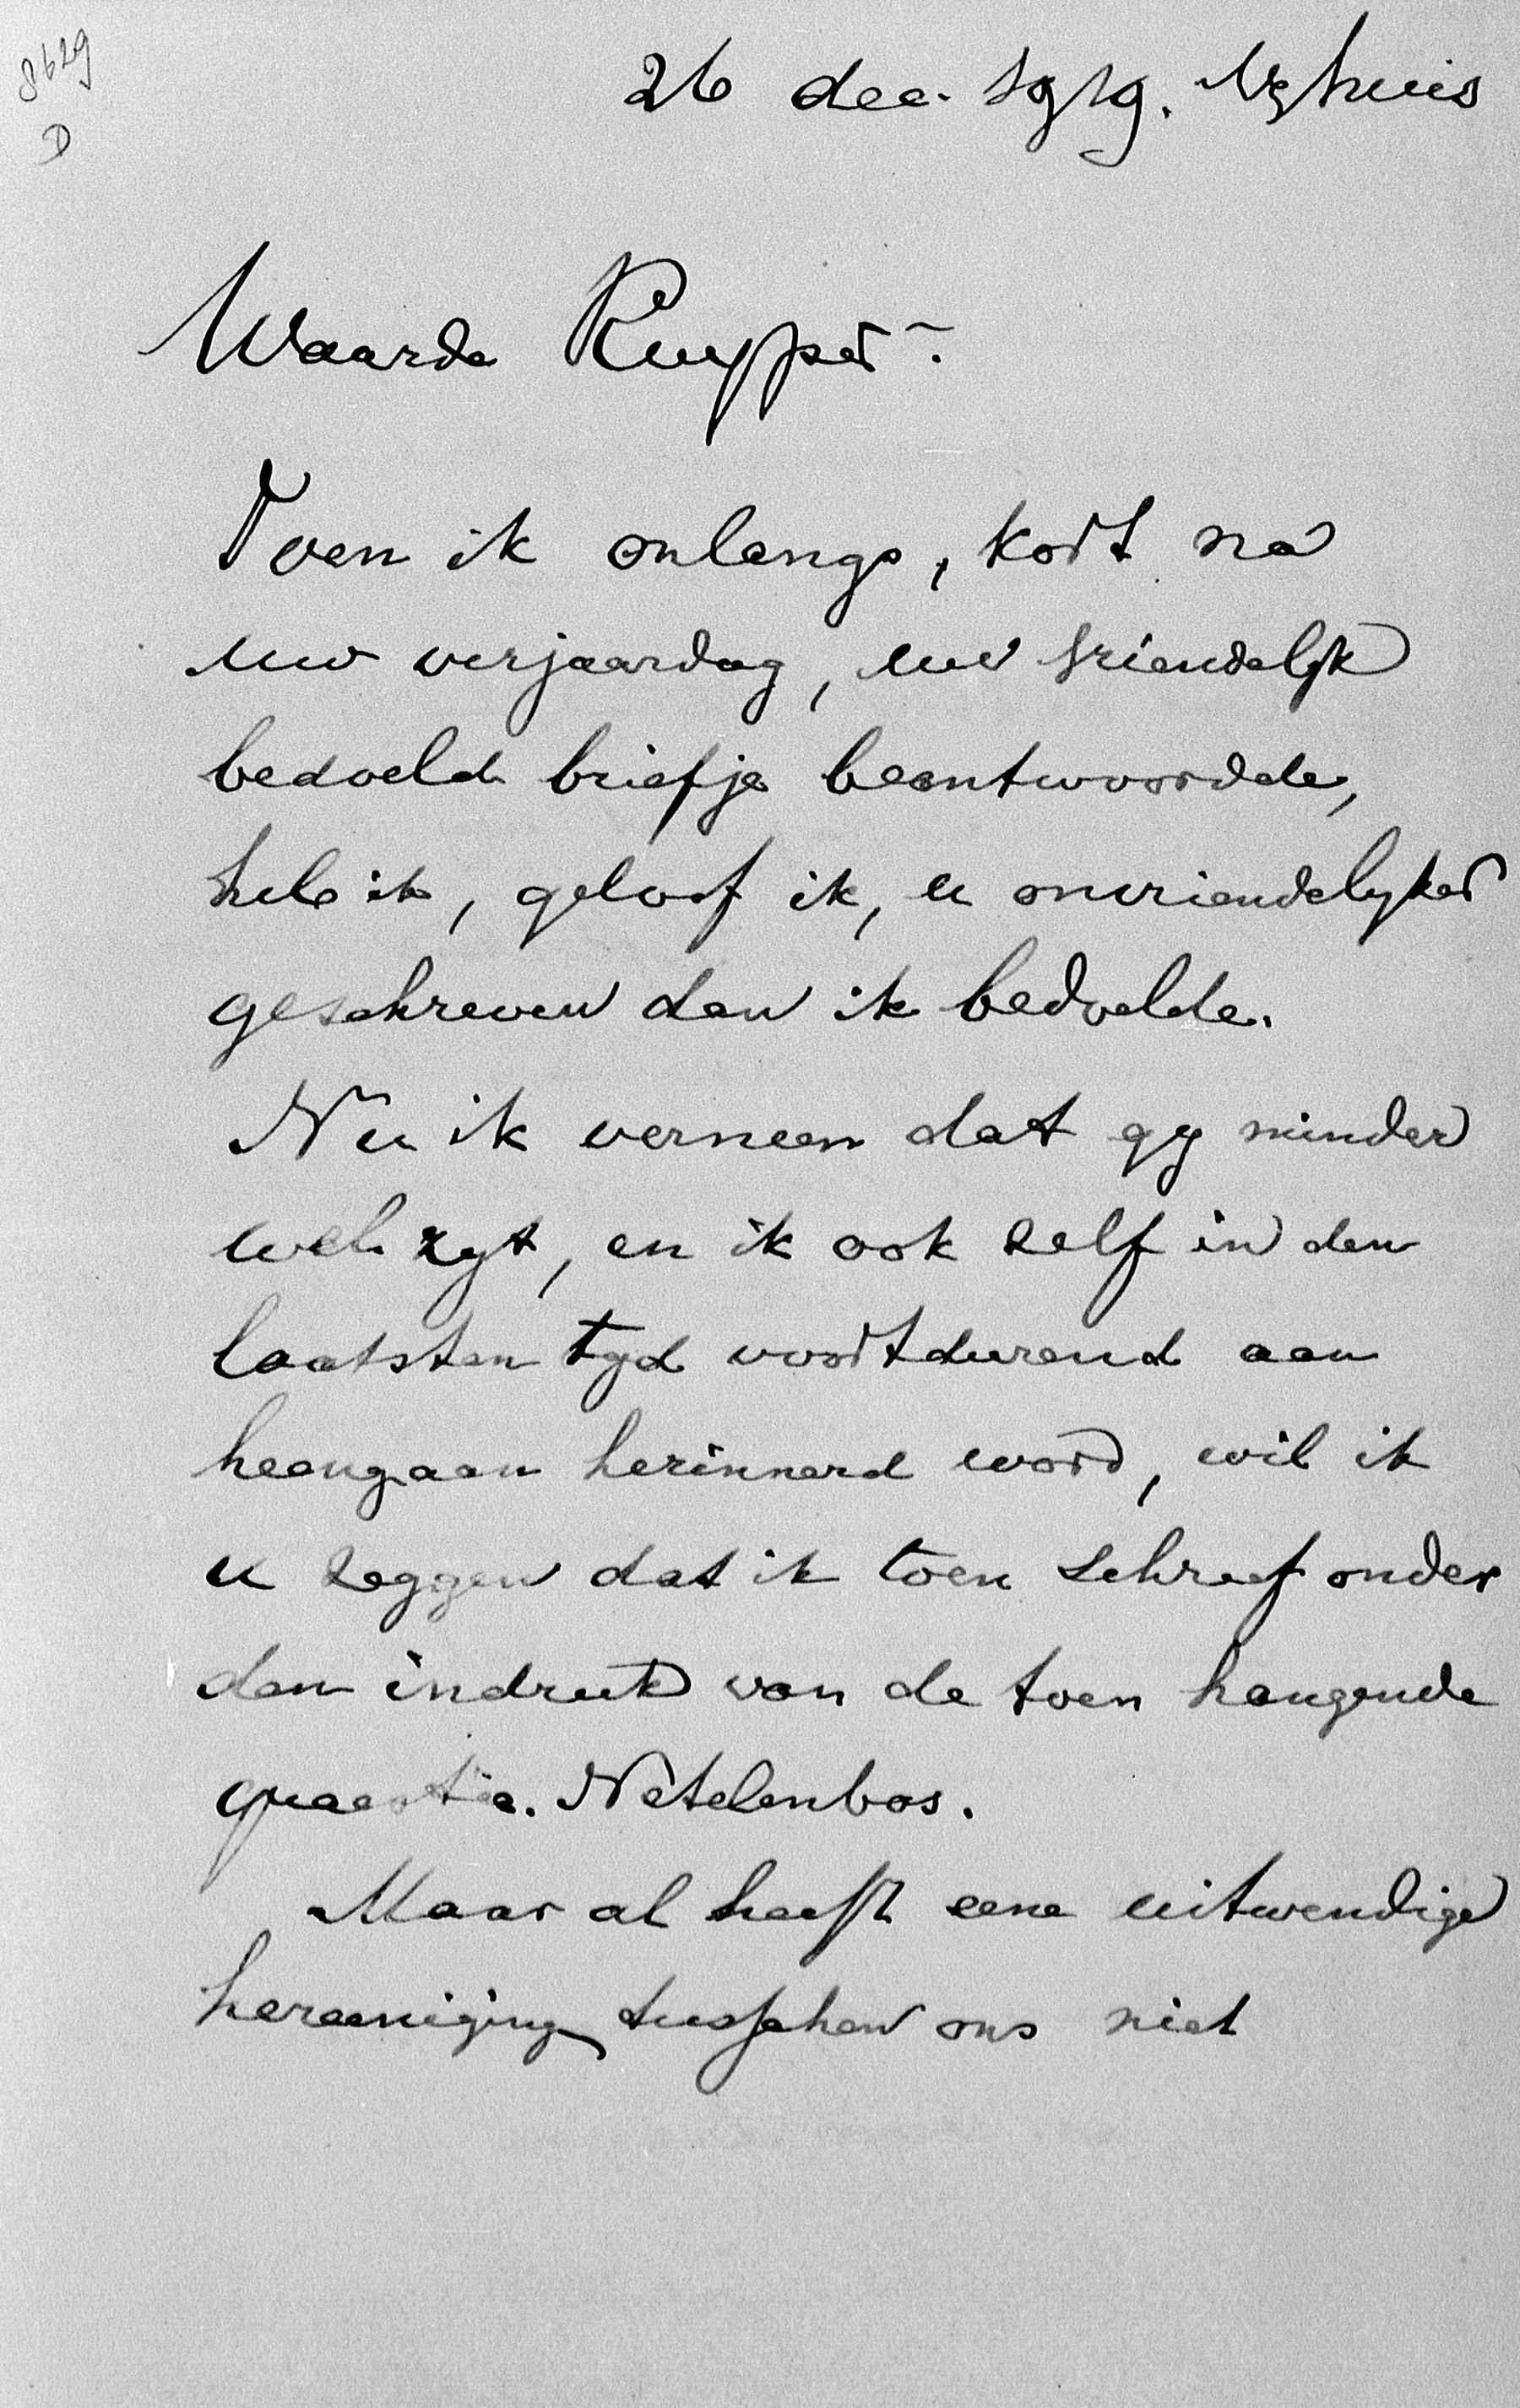 8629
D
26 dec. 1919. Nyhuis
Waarde Kuyper.
Toen ik onlangs, kort na
uw verjaardag, uw vriendelijk
bedoeld briefje beantwoordde,
heb ik, geloof ik, u onvriendelyker
geschreven dan ik bedoelde.
Nu ik verneem dat gy minder
wel zyt, en ik ook zelf in den
laatsten tyd voortdurend aan
heengaan herinnerd word, wil ik
u zeggen dat ik toen schreef onder
den indruk van de toen hangende
quaestie. Netelenbos.
Maar al heeft eene uitwendige
hereeniging tusschen ons niet